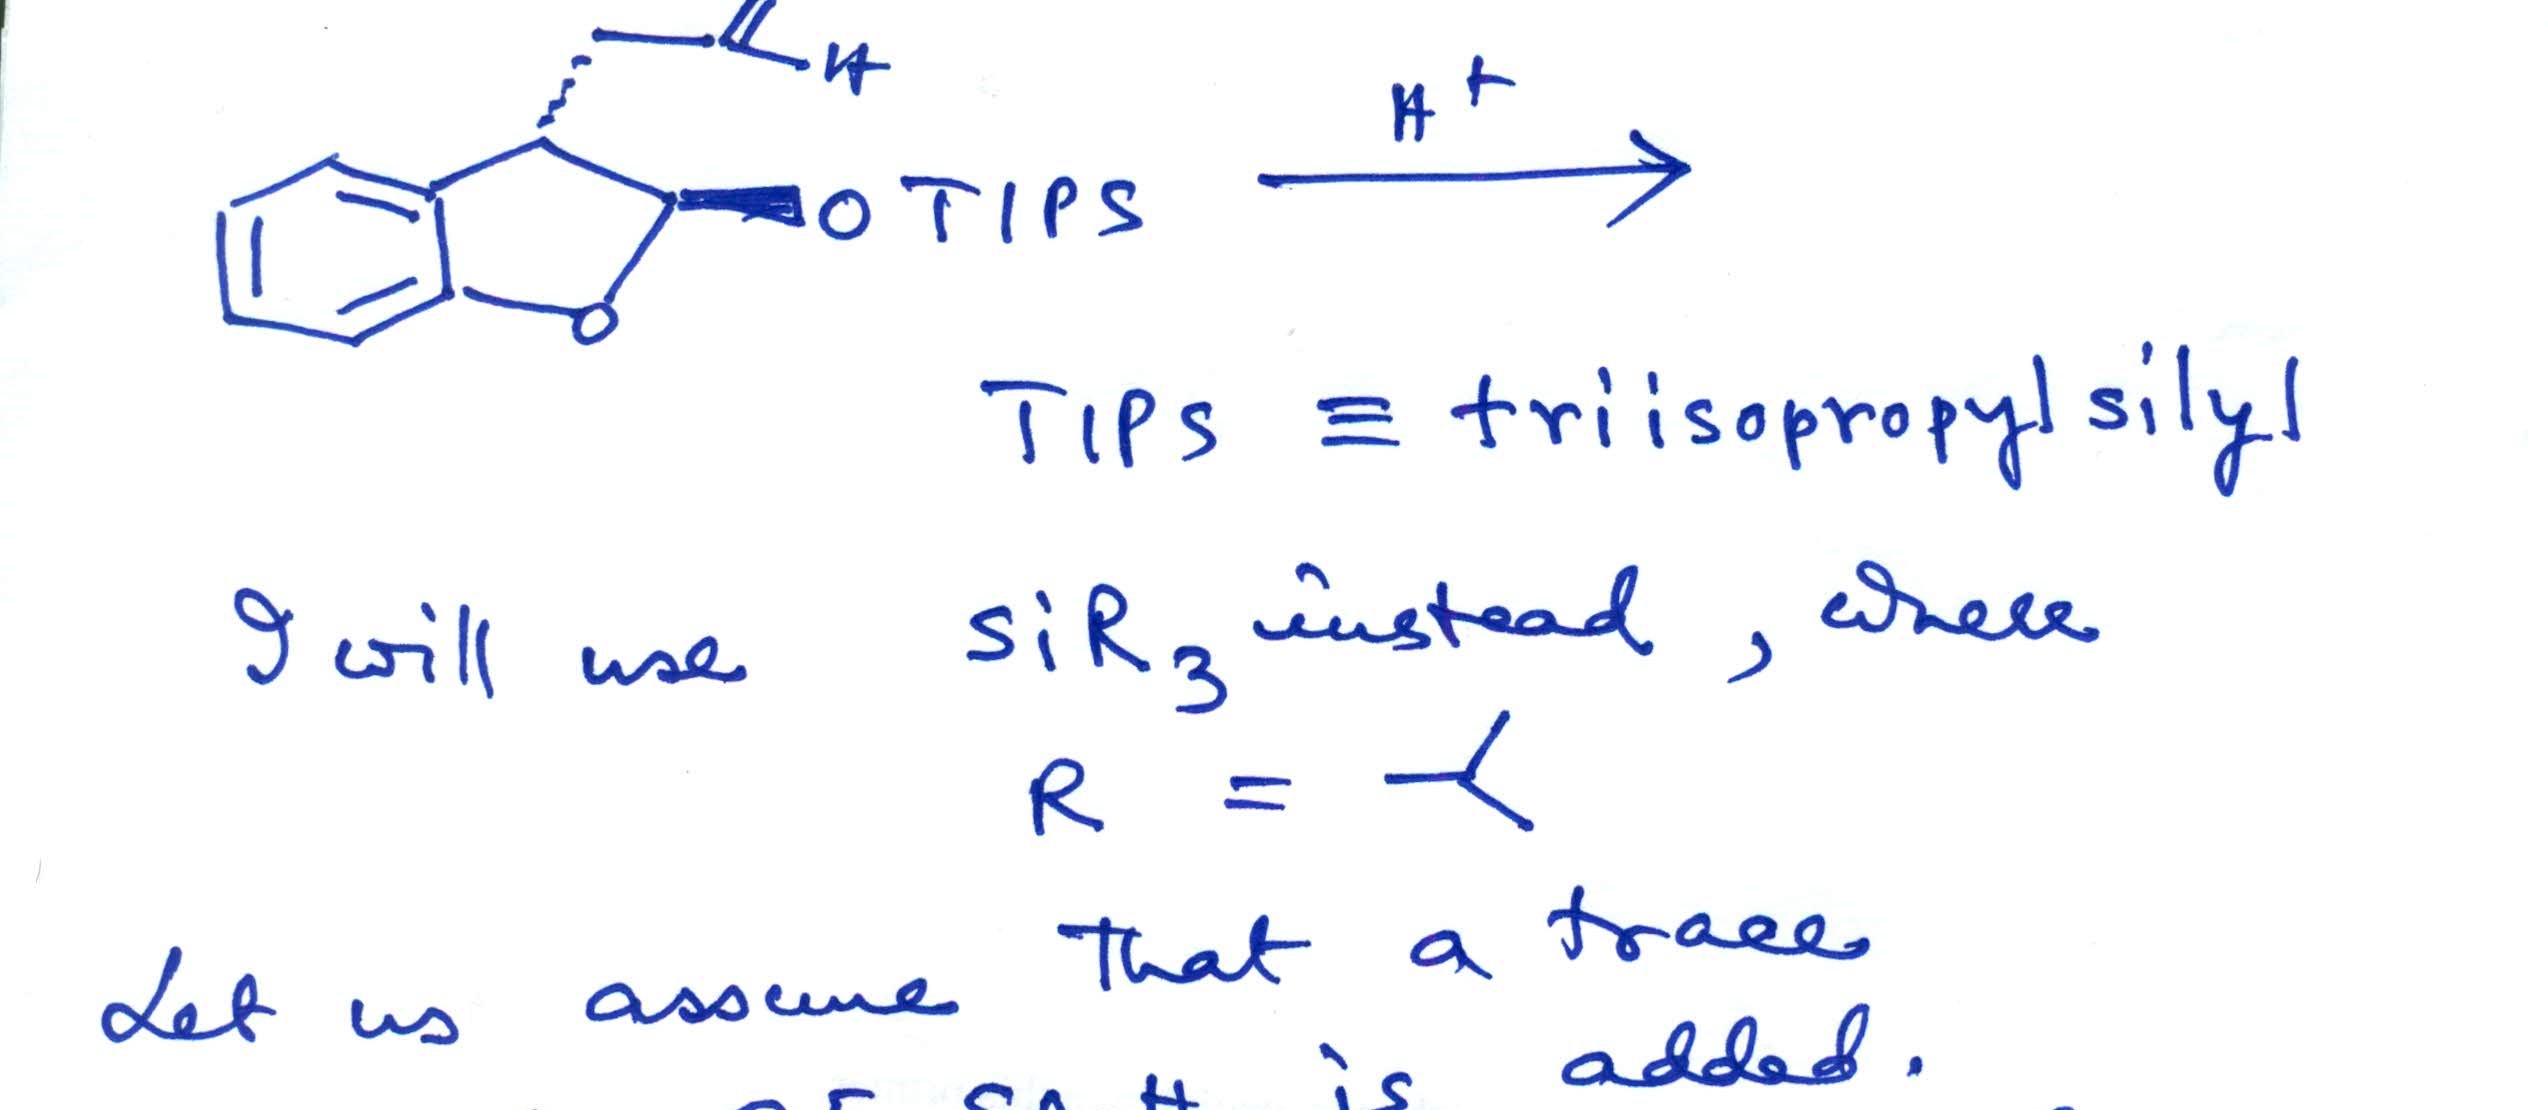 H
H+
OTIPS
O
TIPS ≡ triisopropylsilyl
I will use SiR3 instead, where
R =
Let us assume that a trace
is added.